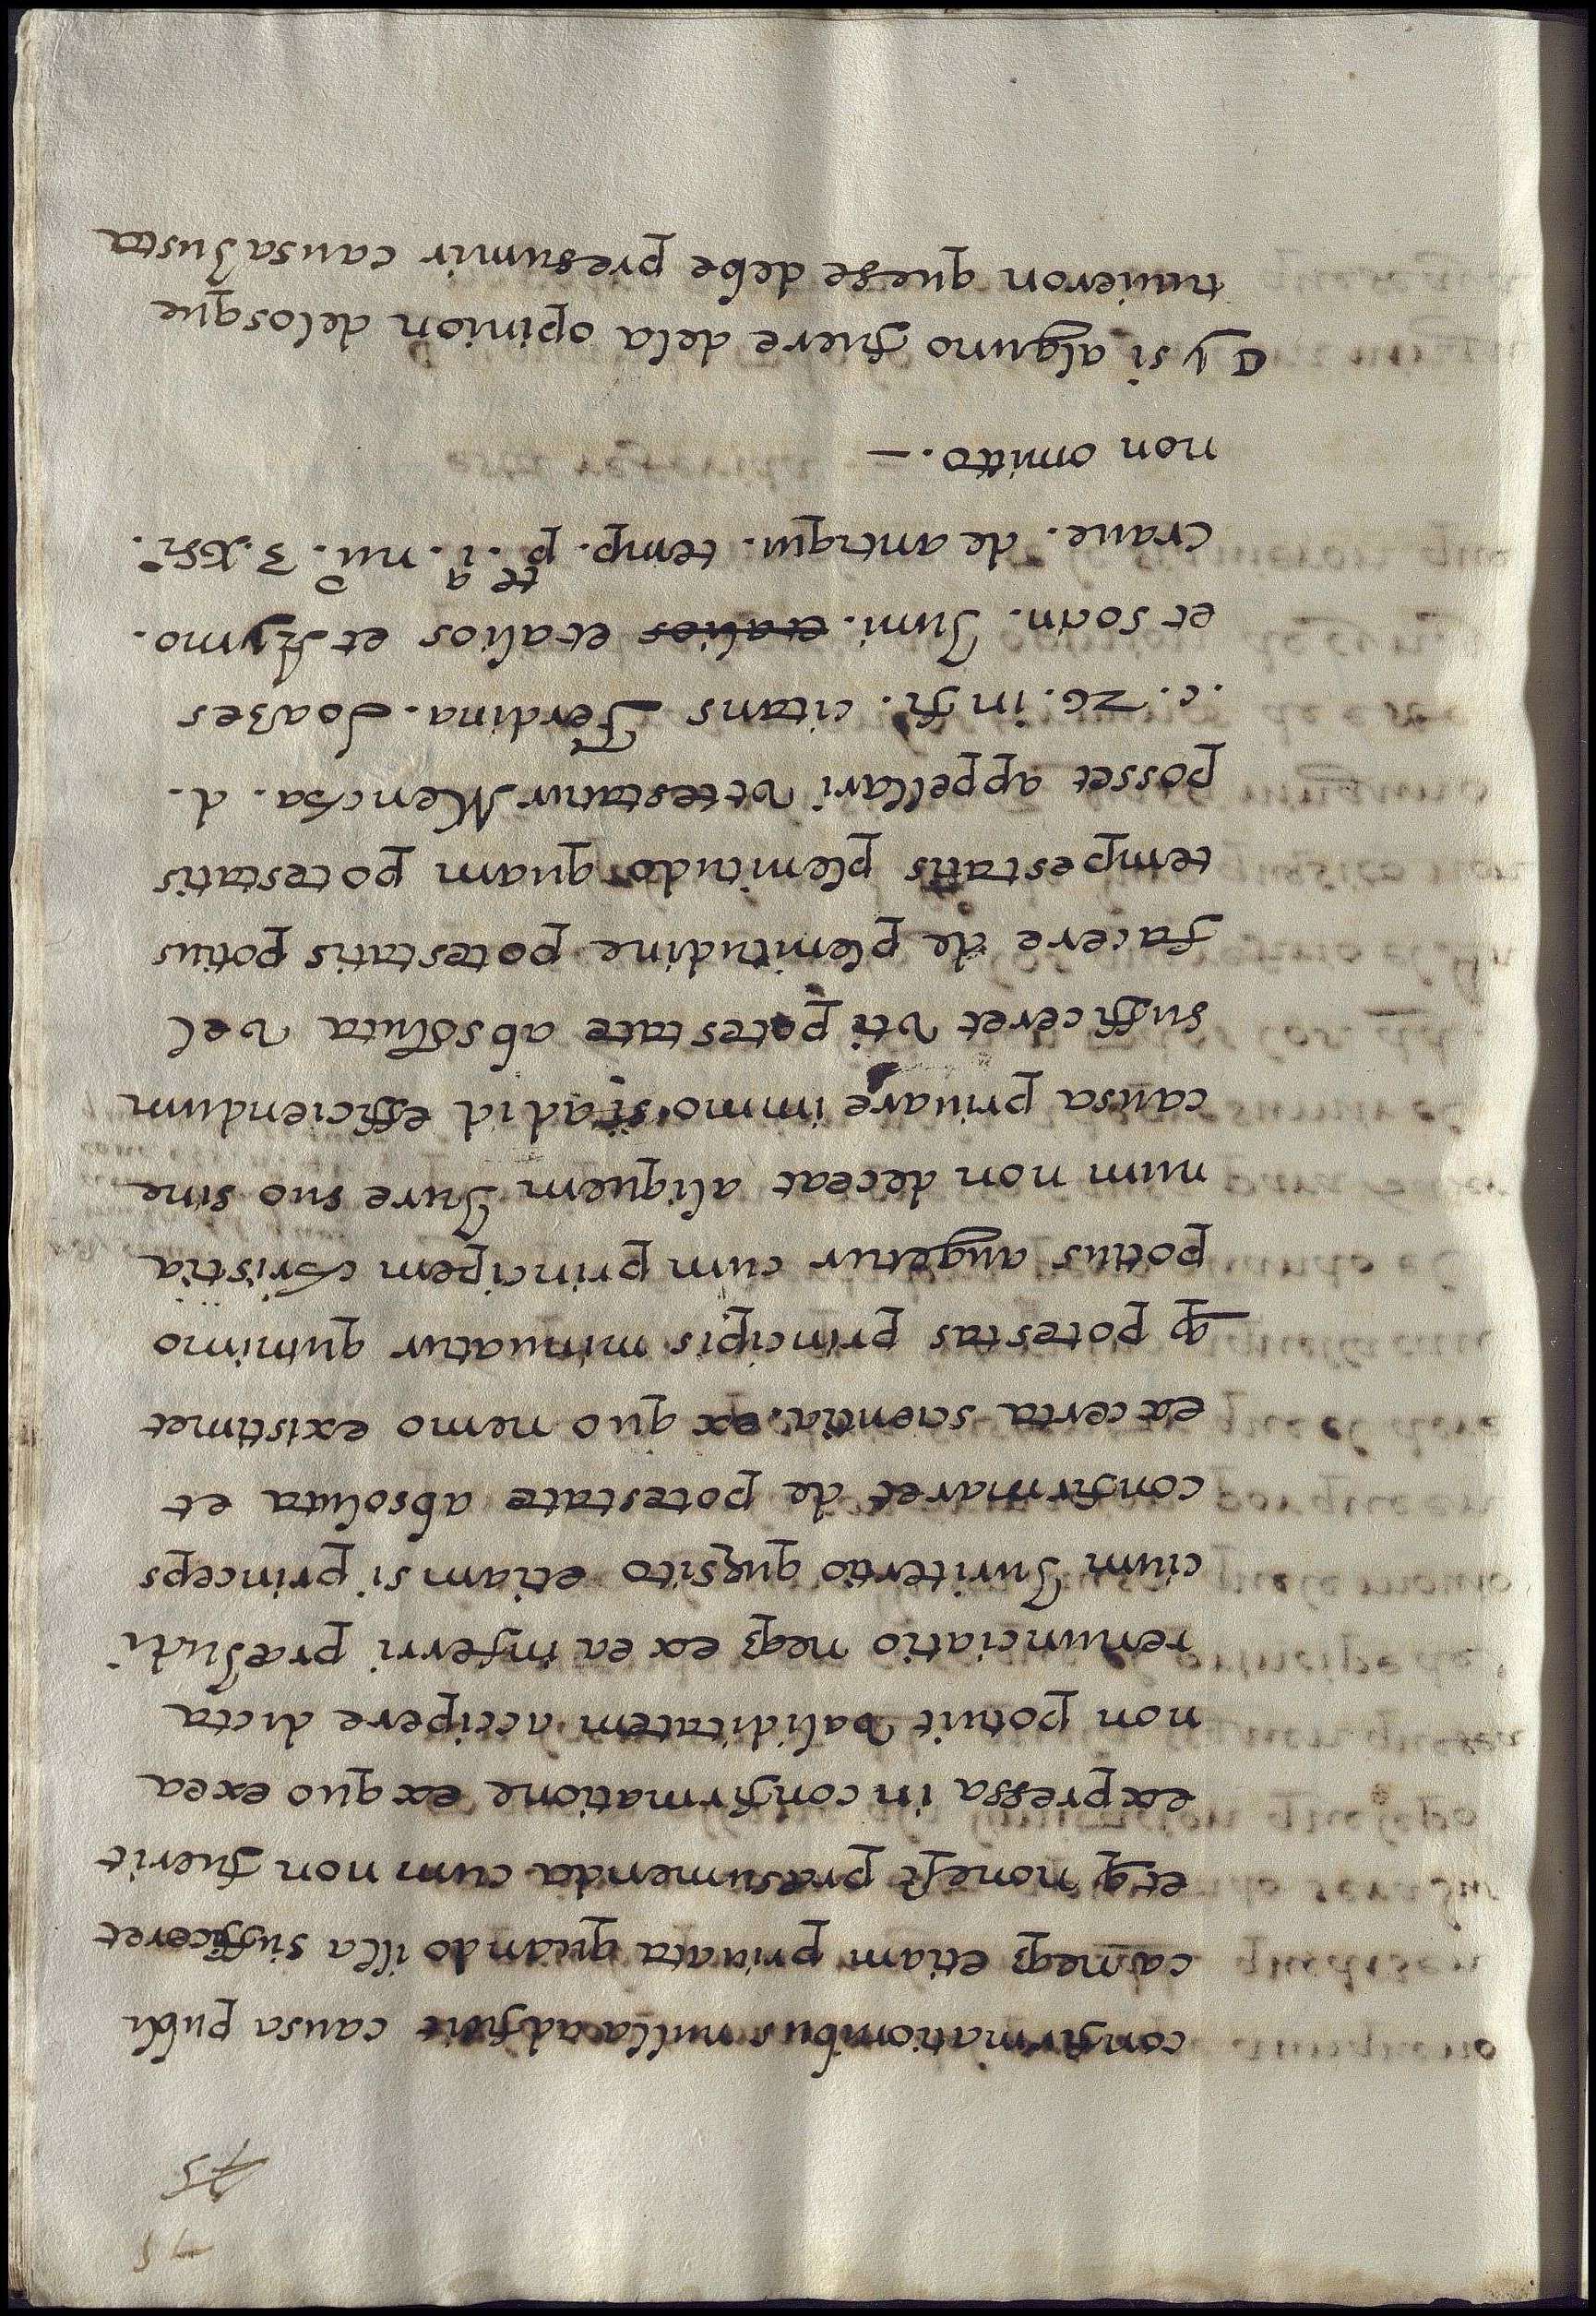 75
75
confirmationibus nulla adfuit causa publi
ca neqȝ etiam priuata quando illa sufficeret
et q̃ non est præsumenda cum non fuerit
expressa in confirmatione ex quo ex ea
non potuit validitatem accipere dicta
renunciatio neqȝ ex ea inferri præiudi
cium Juri tertio quęsito etiam si princeps
confirmaret de potestate absoluta et
ex certa scientia. ex quo nemo existimet
q̃ potestas principis minuatur quinimo
potius augetur cum principem christia
num non deceat aliquem Jure suo sine
causa priuare immo si ad id efficiendum
sufficeret vti potestate absoluta vel
facere de plenitudine potestatis potius
tempestatis plenitudo quam potestatis
posset appellari vt testatur Mencha. d.
.c. 26. in fi. citans Ferdina. Loazes
et Soan. Jumi. et alios et alios et Aymo.
craue. de antiqui. temp. p.te i.a nu.o 3. xsr.
non omitto. —
a y si alguno fuere dela opinion delos que
tuuieron que se debe presumir causa Justa